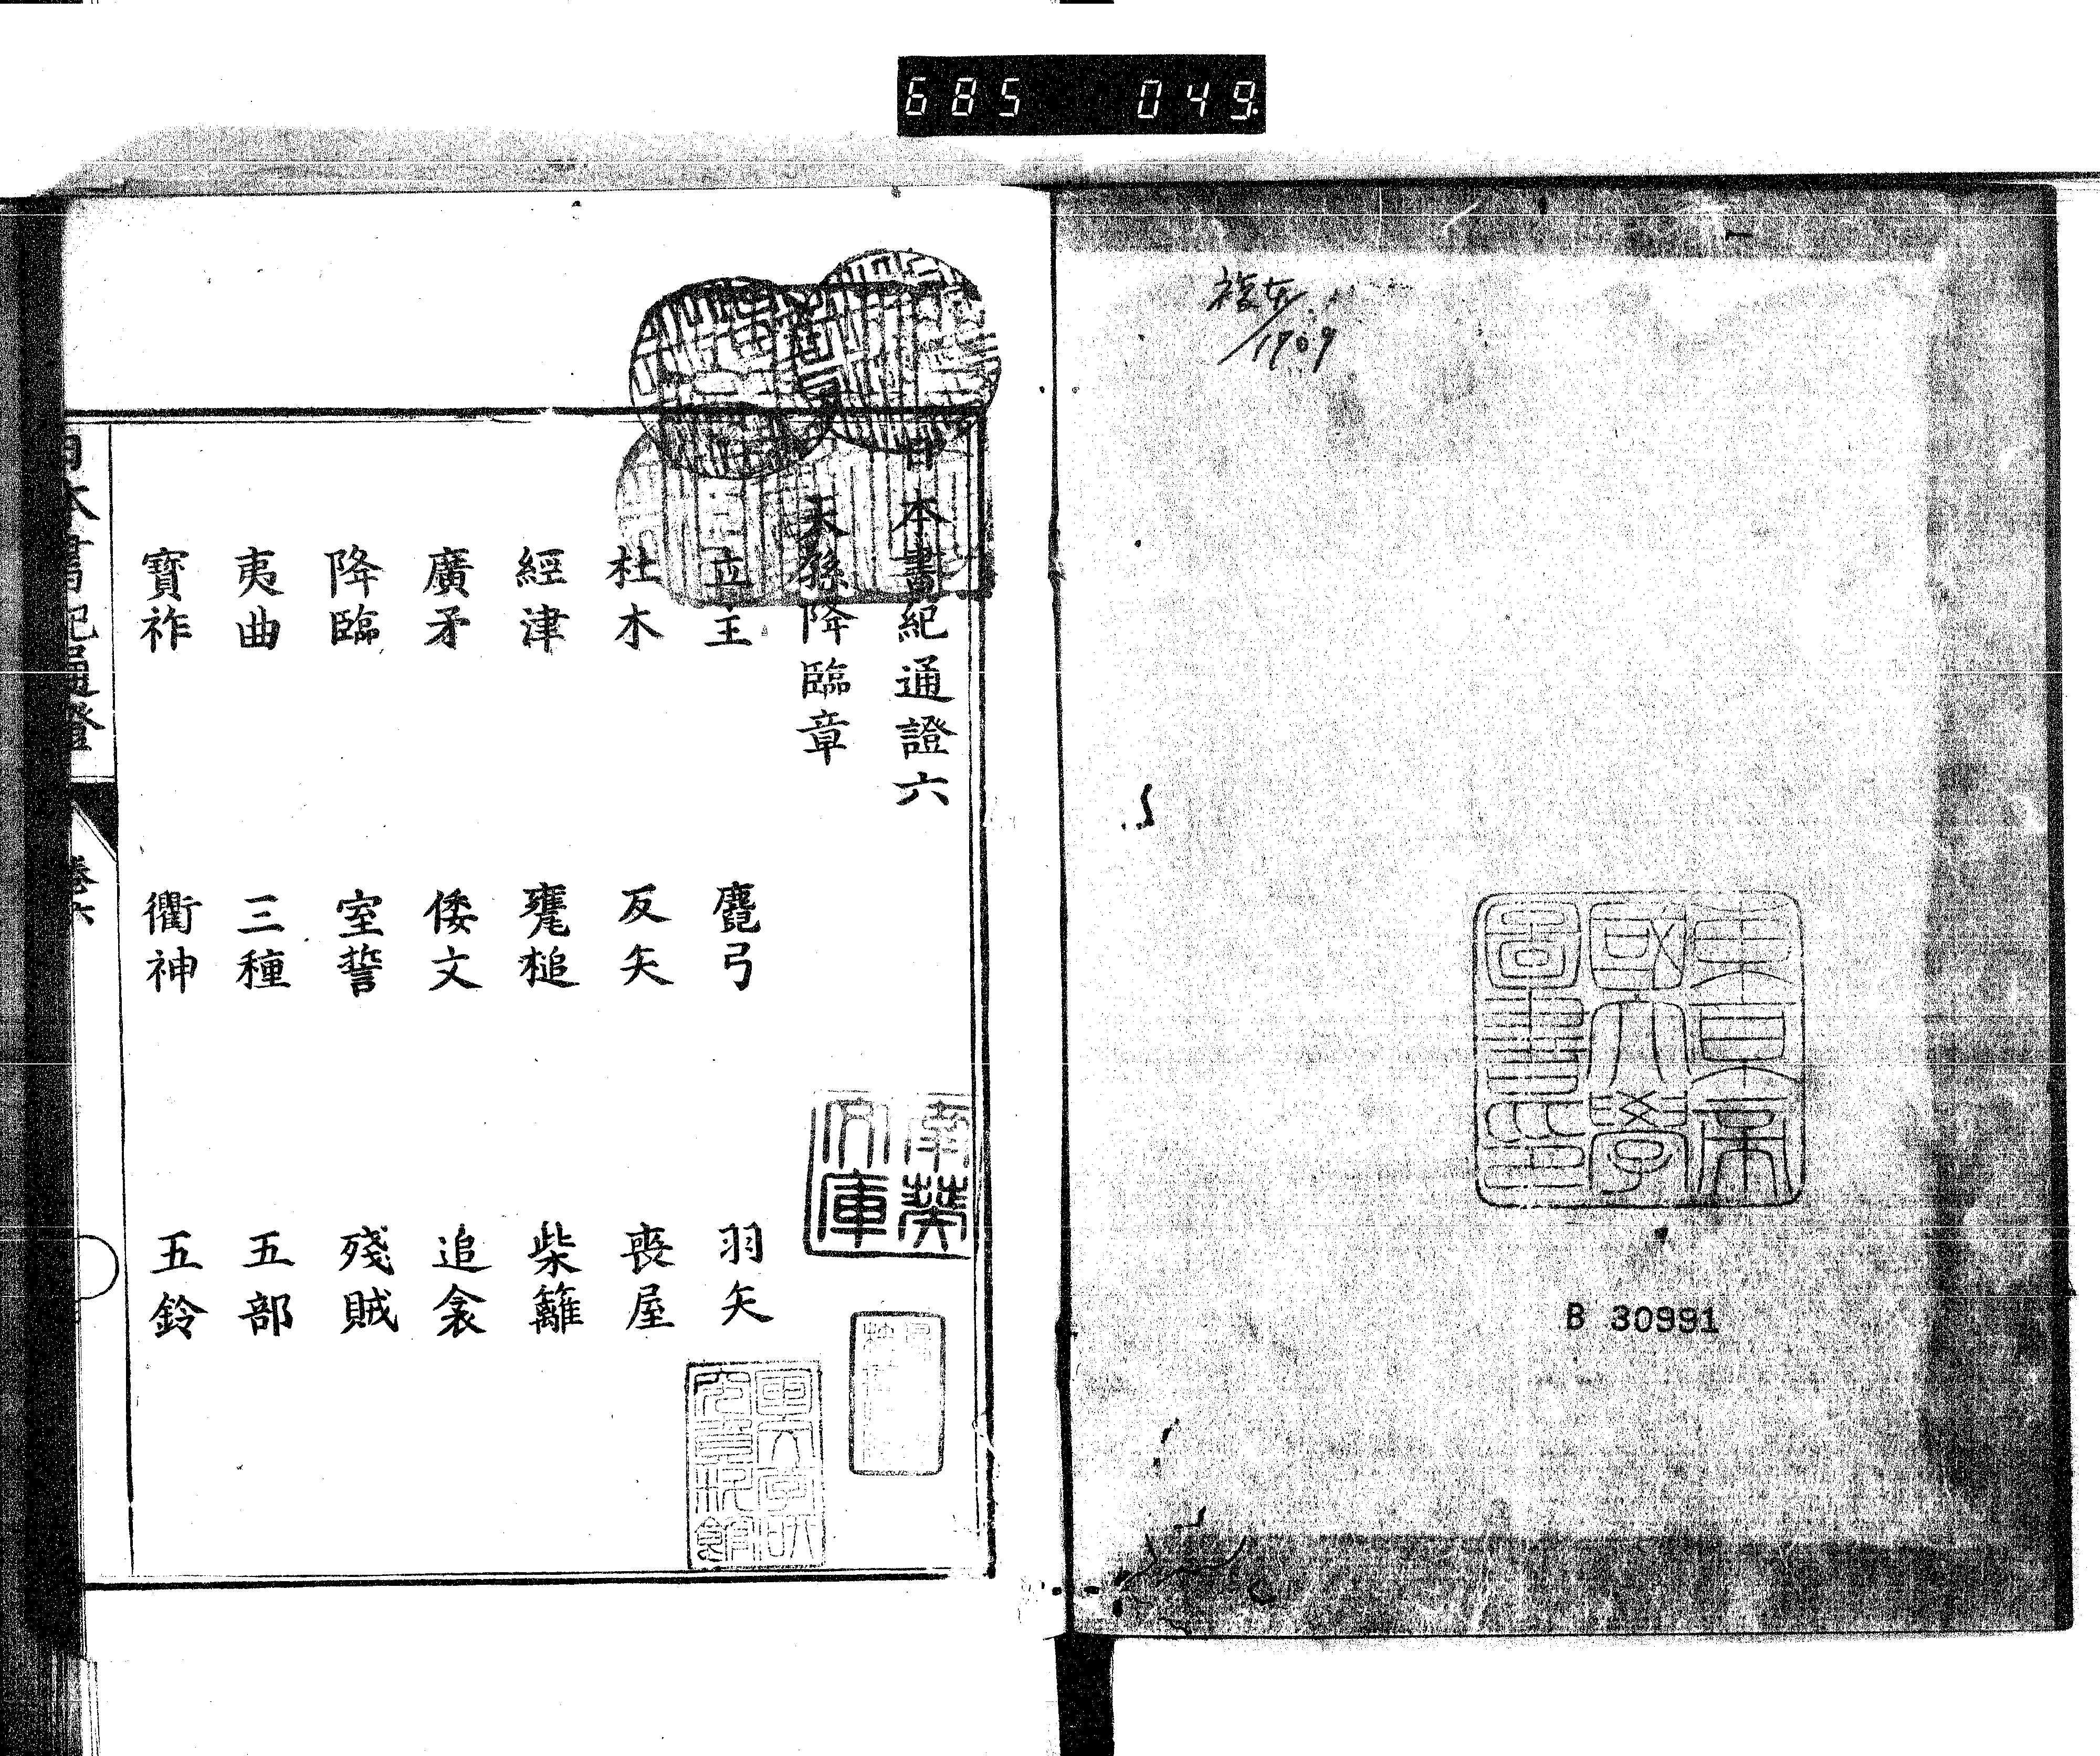 685 049
1909
東京帝
國大學
圖書印
B 30991
日本書紀通證六
天孫降臨章
立主 麑弓 羽矢
杜木 反矢 喪屋
經津 甕槌 柴籬
廣矛 倭文 追衾
降臨 室誓 殘賊
夷曲 三種 五部
寶祚 衢神 五鈴
南葵
文庫
日本書紀通證 卷六